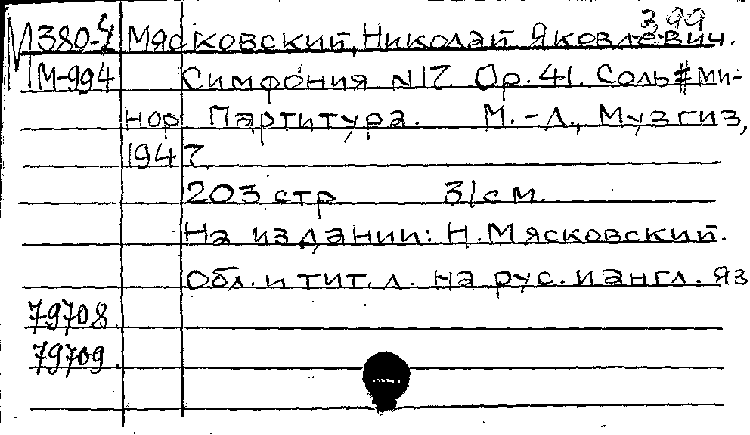 3,99
М380-4 Мясковский, Николай Яковлевич.
1М-994 Симфония N17 Ор. 41. Соль # ми-
нор Партитура. М.-Л., Музгиз,
1947.
203 стр 31 см.
На издании: Н. Мясковский.
Обл. и тит. л. на рус. и англ. яз
79708.
79709.